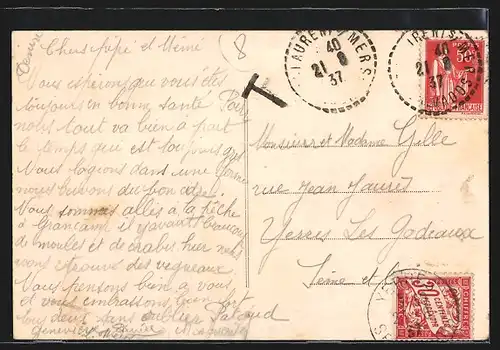 Chers pépé et Mémé
Nous espérons que vous êtes
toujours en bonne santé Pour
nous tout va bien à part
le temps que est toujours gris
Nous logeons dans une ferme
nous buvons du bon cidre
Nous sommes allés à la pêche
à Grancamp il y avait beaucoup
de moules et de crabes hier nous
avons trouvé des vegneaux
Nous pensons bien à vous
et vous embrassons bien fort
tous deux sans oublier
Geneviève
8
T
LAURENT MERS
40
21 8
37
40
21 8
37
POSTES
50c
Monsieur et Madame Gille
rue Jean Jaurès
Yerres Les Godeaux
Seine et
30
CENTIMES
A PERCEVOIR